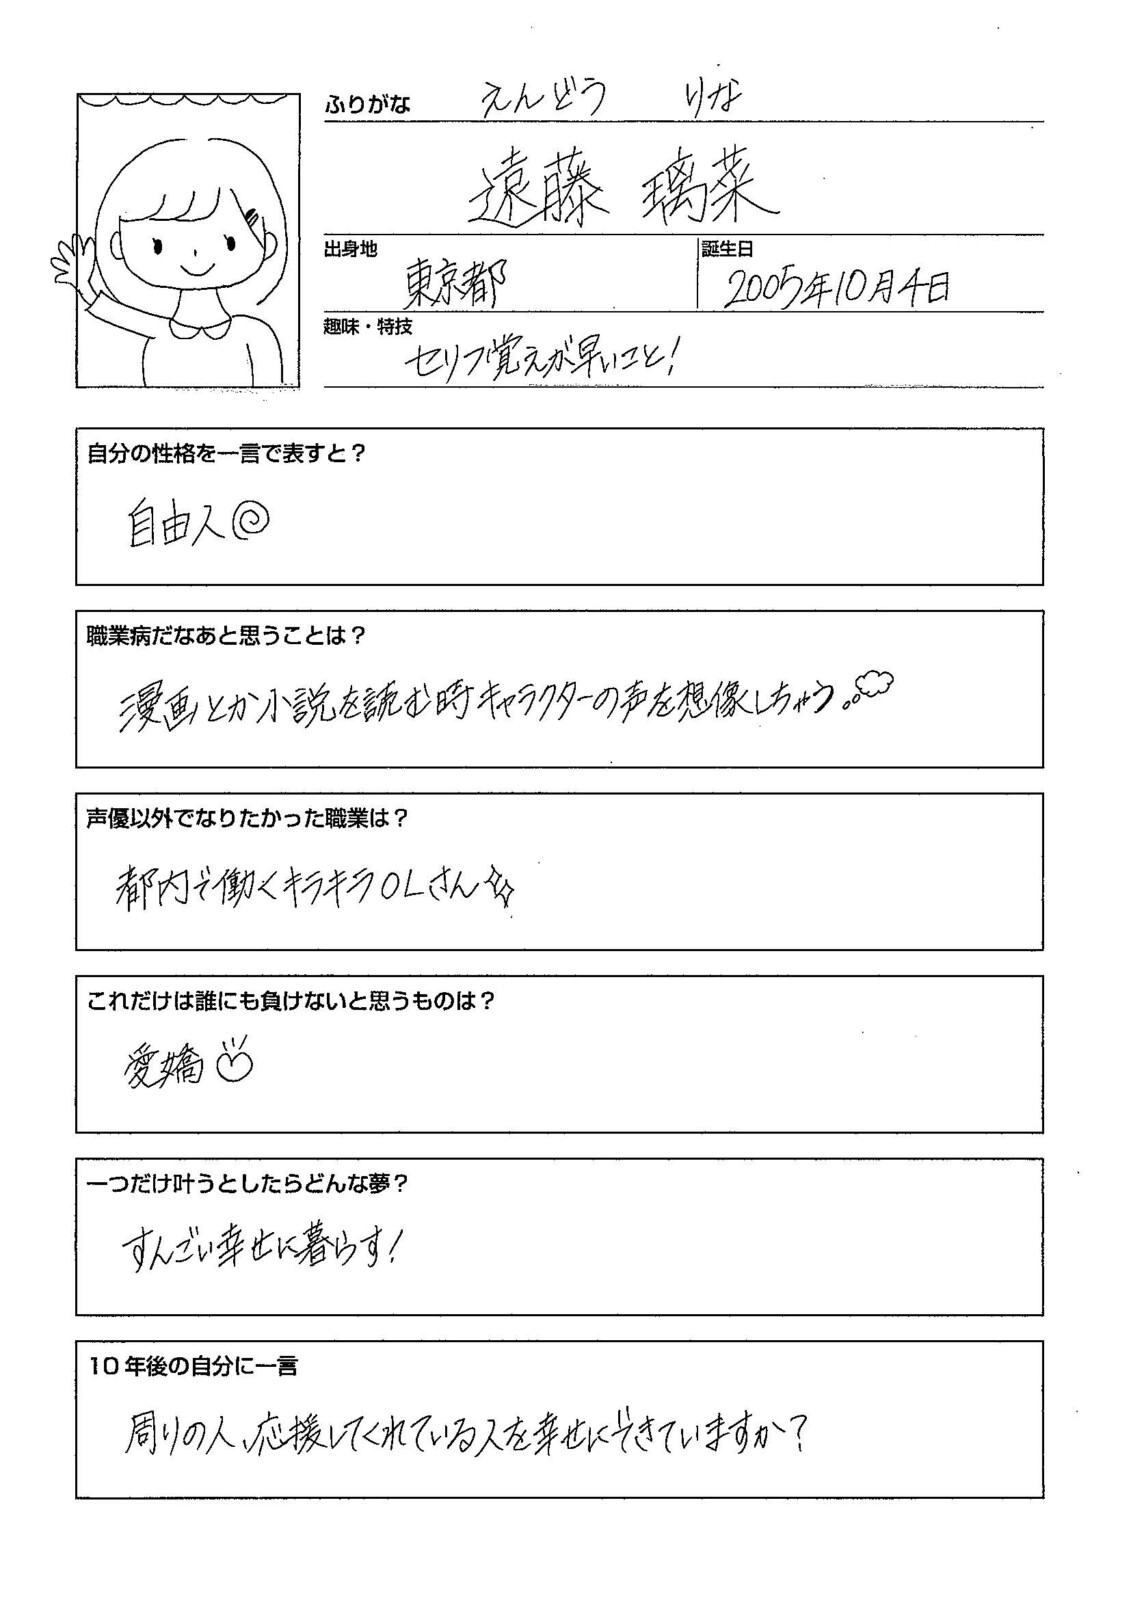 ふりがな えんどう りな
遠藤 璃菜
出身地 誕生日
東京都 2005年10月4日
趣味・特技
セリフ覚えが早いこと!
自分の性格を一言で表すと?
自由人
職業病だなあと思うことは?
漫画とか小説を読む時キャラクターの声を想像しちゃう。
声優以外でなりたかった職業は?
都内で働くキラキラOLさん
これだけは誰にも負けないと思うものは?
愛嬌
一つだけ叶うとしたらどんな夢?
すんごい幸せに暮らす!
10年後の自分に一言
周りの人、応援してくれている人を幸せにできていますか?